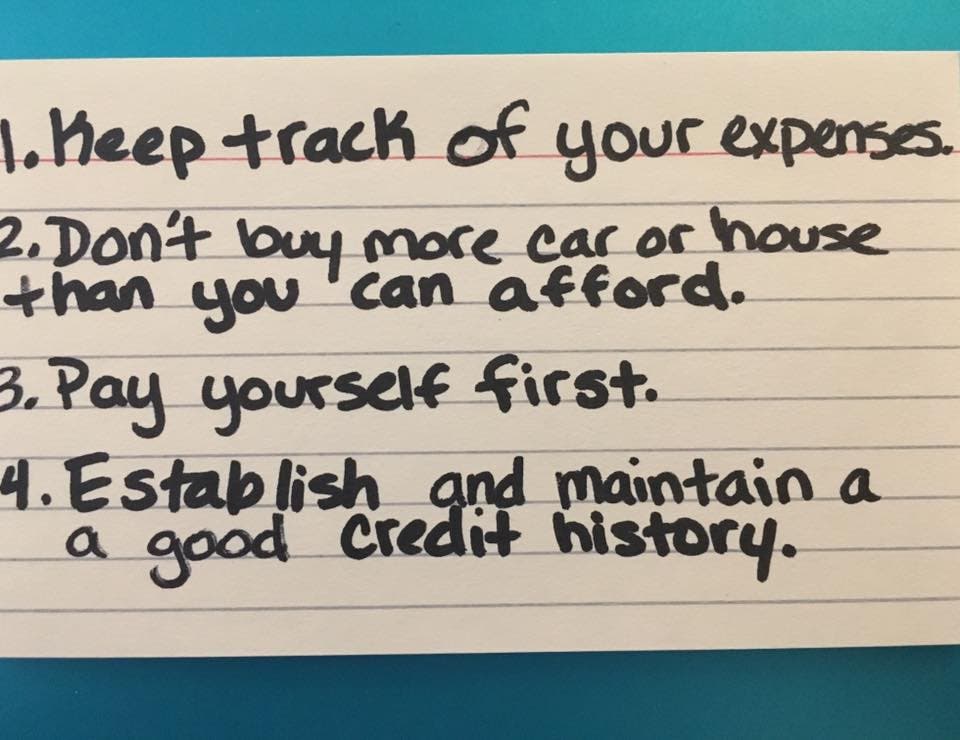 1. Keep track of your expenses.
2. Don't buy more car or house
than you can afford.
3. Pay yourself first.
4. Establish and maintain a
a good credit history.